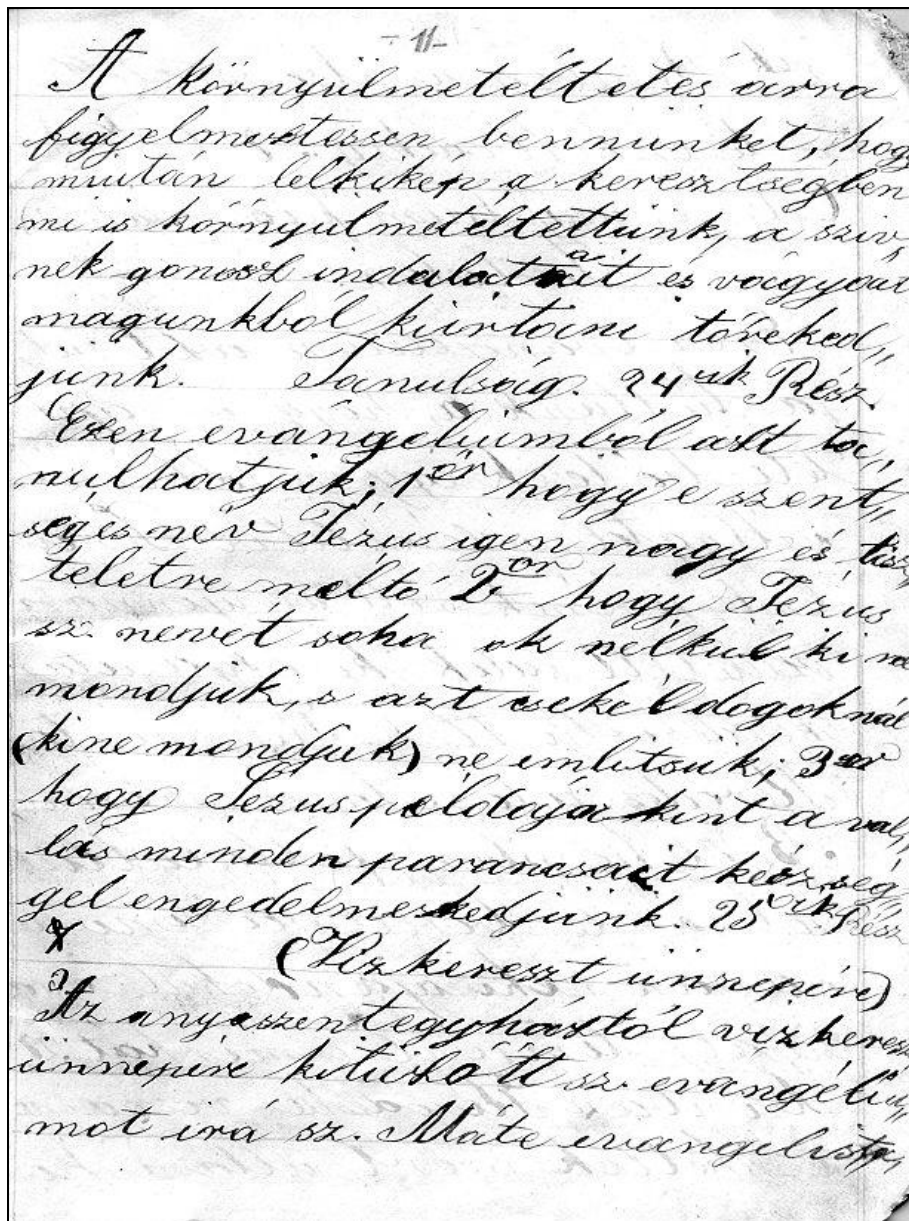 - 11 -
A környülmetéltetés arra
figyelmeztessen bennünket, hogy
miután lelkikép a keresztségben
mi is környülmetéltettünk, a sziv„
nek gonosz indulatait és vágyait
magunkból kiirtani töreked„
jünk. Tanulság. 24ik Rész
Ezen evángeliumból azt ta„
nulhatjuk; 1ör hogy e szent„
séges név Jézus igen nagy és tisz„
teletre méltó 2or hogy Jézus
sz. nevét soha ok nélkül ki ne
mondjuk, s azt csekél dogoknál
(kine mondjuk) ne emlitsük; 3or
hogy Jézus példája kint a val„
lás minden parancsait készség„
gel engedelmeskedjünk. 25ik Rész
(Vizkereszt ünnepére)
Az anyaszentegyháztól vizkereszt
ünnepére kitüzött sz. evángéliu„
mot irá sz. Máte evangelista,